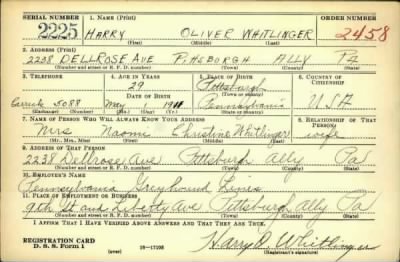 SERIAL NUMBER 1. NAME (Print) ORDER NUMBER
2225 HARRY OLIVER WHITLINGER 2458
(First) (Middle) (Last)
2. ADDRESS (Print)
2238 DELLROSE AVE PITTSBURGH ALLY PA
(Number and street or R. F. D. number) (Town) (County) (State)
3. TELEPHONE 4. AGE IN YEARS 5. PLACE OF BIRTH 6. COUNTRY OF CITIZENSHIP
29 Pittsburgh
DATE OF BIRTH (Town or county)
Carrick 5088 May 1911 Pennsylvania USA
(Exchange) (Number) (Mo.) (Day) (Yr.) (State or country)
7. NAME OF PERSON WHO WILL ALWAYS KNOW YOUR ADDRESS 8. RELATIONSHIP OF THAT PERSON
Mrs Naomi Christine Whitlinger wife
(Mr., Mrs., Miss) (First) (Middle) (Last)
9. ADDRESS OF THAT PERSON
2238 Dellrose Ave Pittsburgh Ally Pa
(Number and street or R. F. D. number) (Town) (County) (State)
10. EMPLOYER'S NAME
Pennsylvania Greyhound Lines
11. PLACE OF EMPLOYMENT OR BUSINESS
9th St and Liberty Ave Pittsburgh Ally Pa
(Number and street or R. F. D. number) (Town) (County) (State)
I AFFIRM THAT I HAVE VERIFIED ABOVE ANSWERS AND THAT THEY ARE TRUE.
REGISTRATION CARD
D. S. S. Form 1 (over) 16—17105 Harry O. Whitlinger
(Registrant's signature)